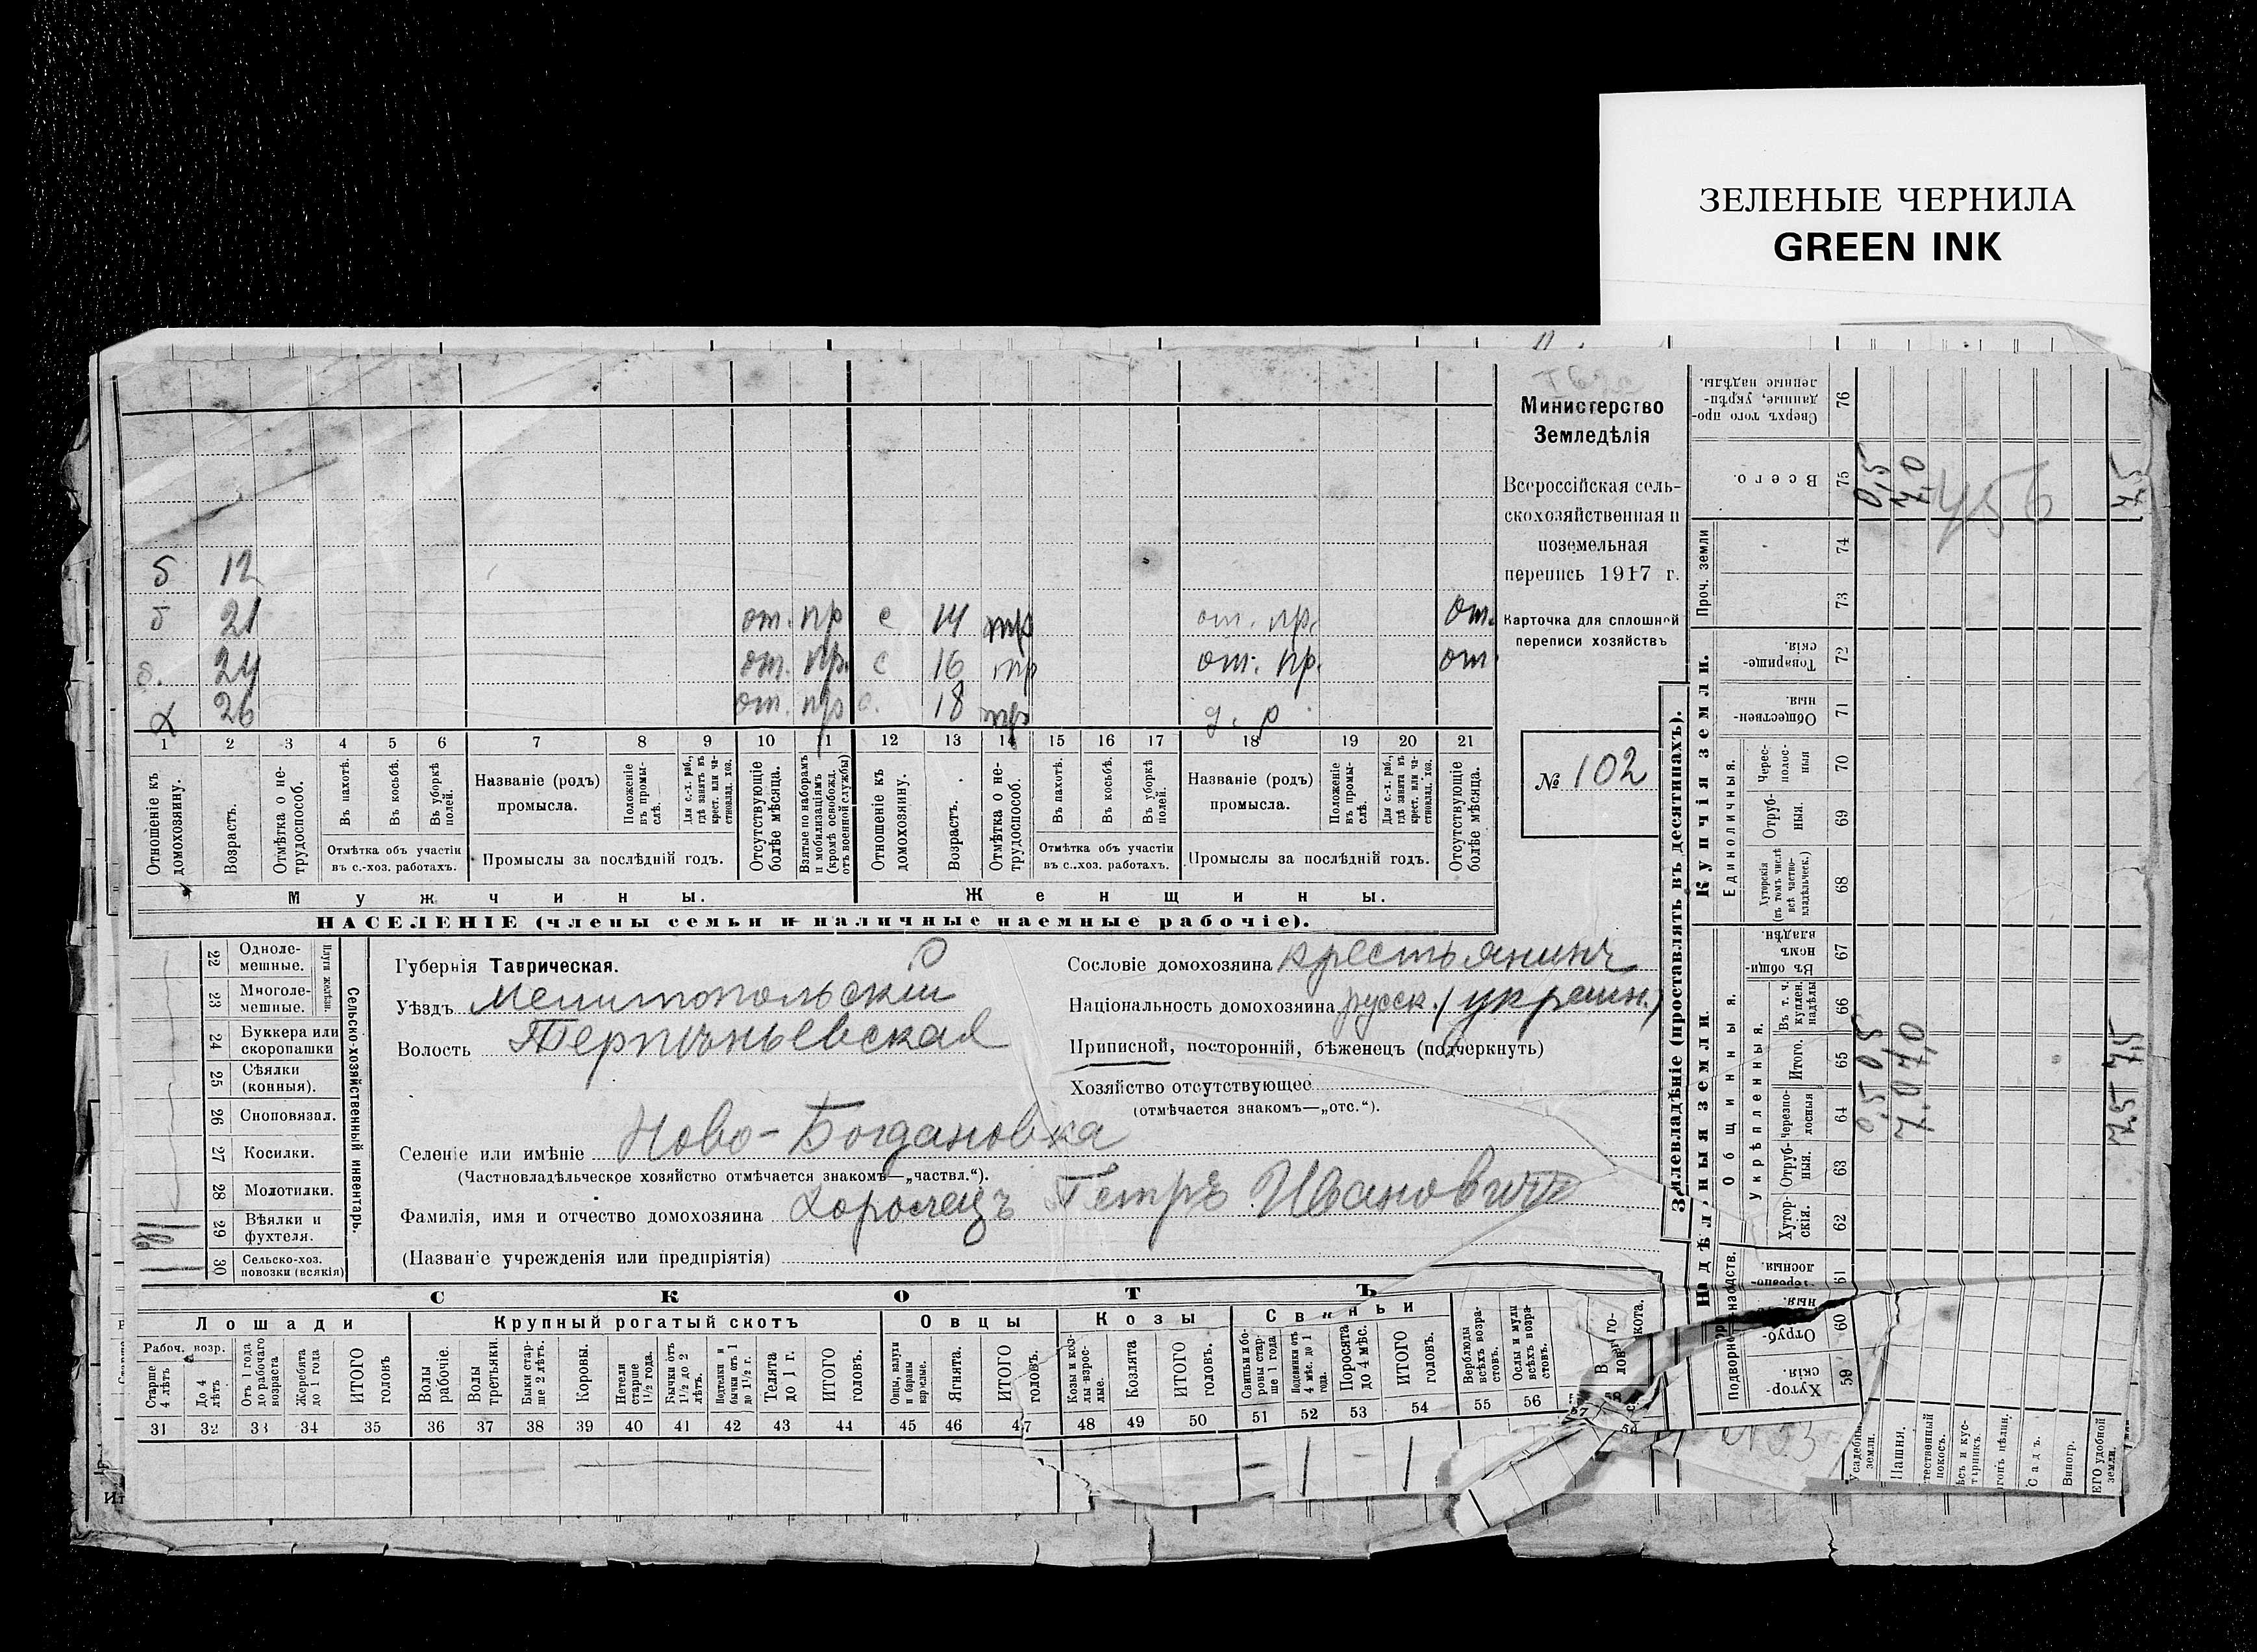 ЗЕЛЕНЫЕ ЧЕРНИЛА
GREEN INK
Министерство
Земледѣлія
Всероссійская сель-
скохозяйственная и
поземельная
перепись 1917 г.
Карточка для сплошной
переписи хозяйствъ
№ 102
б 12
б 21 от. пр с 14 от. пр. от.
б. 24 от. пр. с 16 от. пр. от.
26 от. пр 18
1 2 3 4 5 6 7 8 9 10 11 12 13 14 15 16 17 18 19 20 21
Отношеніе къ домохозяину.
Возрастъ.
Отмѣтка о не-трудоспособ.
Въ пахотѣ.
Въ косьбѣ.
Въ уборкѣ полей.
Отмѣтка объ участіи
въ с.-хоз. работахъ.
Названіе (родъ)
промысла.
Положеніе въ промы-слѣ.
Для с.-х. раб., гдѣ занятъ въ крест. или ча-стновлад. хоз.
Промыслы за послѣдній годъ.
Отсутствующіе болѣе мѣсяца.
Взятые по наборамъ и мобилизаціямъ (кромѣ освобожд. отъ военной службы)
Отношеніе къ домохозяину.
Возрастъ.
Отмѣтка о не-трудоспособ.
Въ пахотѣ.
Въ косьбѣ.
Въ уборкѣ полей.
Отмѣтка объ участіи
въ с..хоз. работахъ.
Названіе (родъ)
промысла.
Положеніе въ промы-слѣ.
Для с.-х. раб., гдѣ занятъ въ крест. или ча-стновлад. хоз.
Промыслы за послѣдній годъ.
Отсутствующіе болѣе мѣсяца.
Мужчины. Женщины.
НАСЕЛЕНІЕ (члены семьи и наличные наемные рабочіе).
22 Одноле-мешные.
23 Многоле-мешные.
Плуги желѣзн.
24 Буккера или скоропашки
25 Сѣялки (конныя).
26 Сноповязал.
27 Косилки.
28 Молотилки.
29 Вѣялки и фухтеля.
30 Сельско-хоз. повозки (всякія)
Сельско-хозяйственный инвентарь.
Губернія Таврическая.
Уѣздъ Мелитопольскій
Волость Терпѣньевская
Селеніе или имѣніе Ново-Богдановка
(Частновладѣльческое хозяйство отмѣчается знакомъ—„частвл.“).
Фамилія, имя и отчество домохозяина Петръ Ивановичъ
(Названіе учрежденія или предпріятія)
Сословіе домохозяина крестьянинъ
Національность домохозяина русск. (украин.)
Приписной, посторонній, бѣженецъ (подчеркнуть)
Хозяйство отсутствующее
(отмѣчается знакомъ—„отс.“).
СКОТЪ
Лошади
Рабоч. возр.
Старше 4 лѣтъ
До 4 лѣтъ
Отъ 1 года до рабочаго возраста
Жеребята до 1 года
ИТОГО головъ
Крупный рогатый скотъ
Волы рабочіе.
Волы третьяки.
Быки стар-ше 2 лѣтъ.
Коровы.
Нетели старше 1½ года.
Бычки отъ 1½ до 2 лѣтъ.
Подтелки и бычки отъ 1 до 1½ г.
Телята до 1 г.
ИТОГО головъ.
Овцы
Овцы, валухи и бараны взрослые.
Ягнята.
ИТОГО головъ.
Козы
Козы и коз-лы взрос-лые.
Козлята
ИТОГО головъ.
Свиньи
Свиньи и бо-ровы стар-ше 1 года
Подсвинки отъ 4 мѣс. до 1 года.
Поросята до 4 мѣс.
ИТОГО головъ.
Верблюды всѣхъ возра-стовъ.
Ослы и мулы всѣхъ возра-стовъ.
31 32 33 34 35 36 37 38 39 40 41 42 43 44 45 46 47 48 49 50 51 52 53 54 55 56
1 1
Землевладѣніе (проставлять въ десятинахъ).
Надѣльныя земли.
Купчія земли.
Проч. земли
Общинныя.
Укрѣпленныя.
Единоличныя.
Сверхъ того про-данные, укрѣп-ленные надѣлы. 76
Всего. 75
74
73
Товарище-скія. 72
Обществен-ныя. 71
Черес-полос-ныя 70
Отруб-ныя. 69
Хуторскія (въ томъ числѣ всѣ частно-владѣльческ.) 68
Въ общи-номъ владѣн. 67
Въ т. ч. куплен. надѣлы 66
Итого. 65
Черезпо-лосныя 64
Отруб-ныя. 63
Хутор-скія. 62
61
Отруб-ныя. 60
Хутор-скія. 59
0,5 0,5 0,5
7.0 7,0 7,0
7,5 7,5 7,5
456
Усадебн. земли.
Пашня.
Садъ.
Виногр.
ЕГО удобной земли.